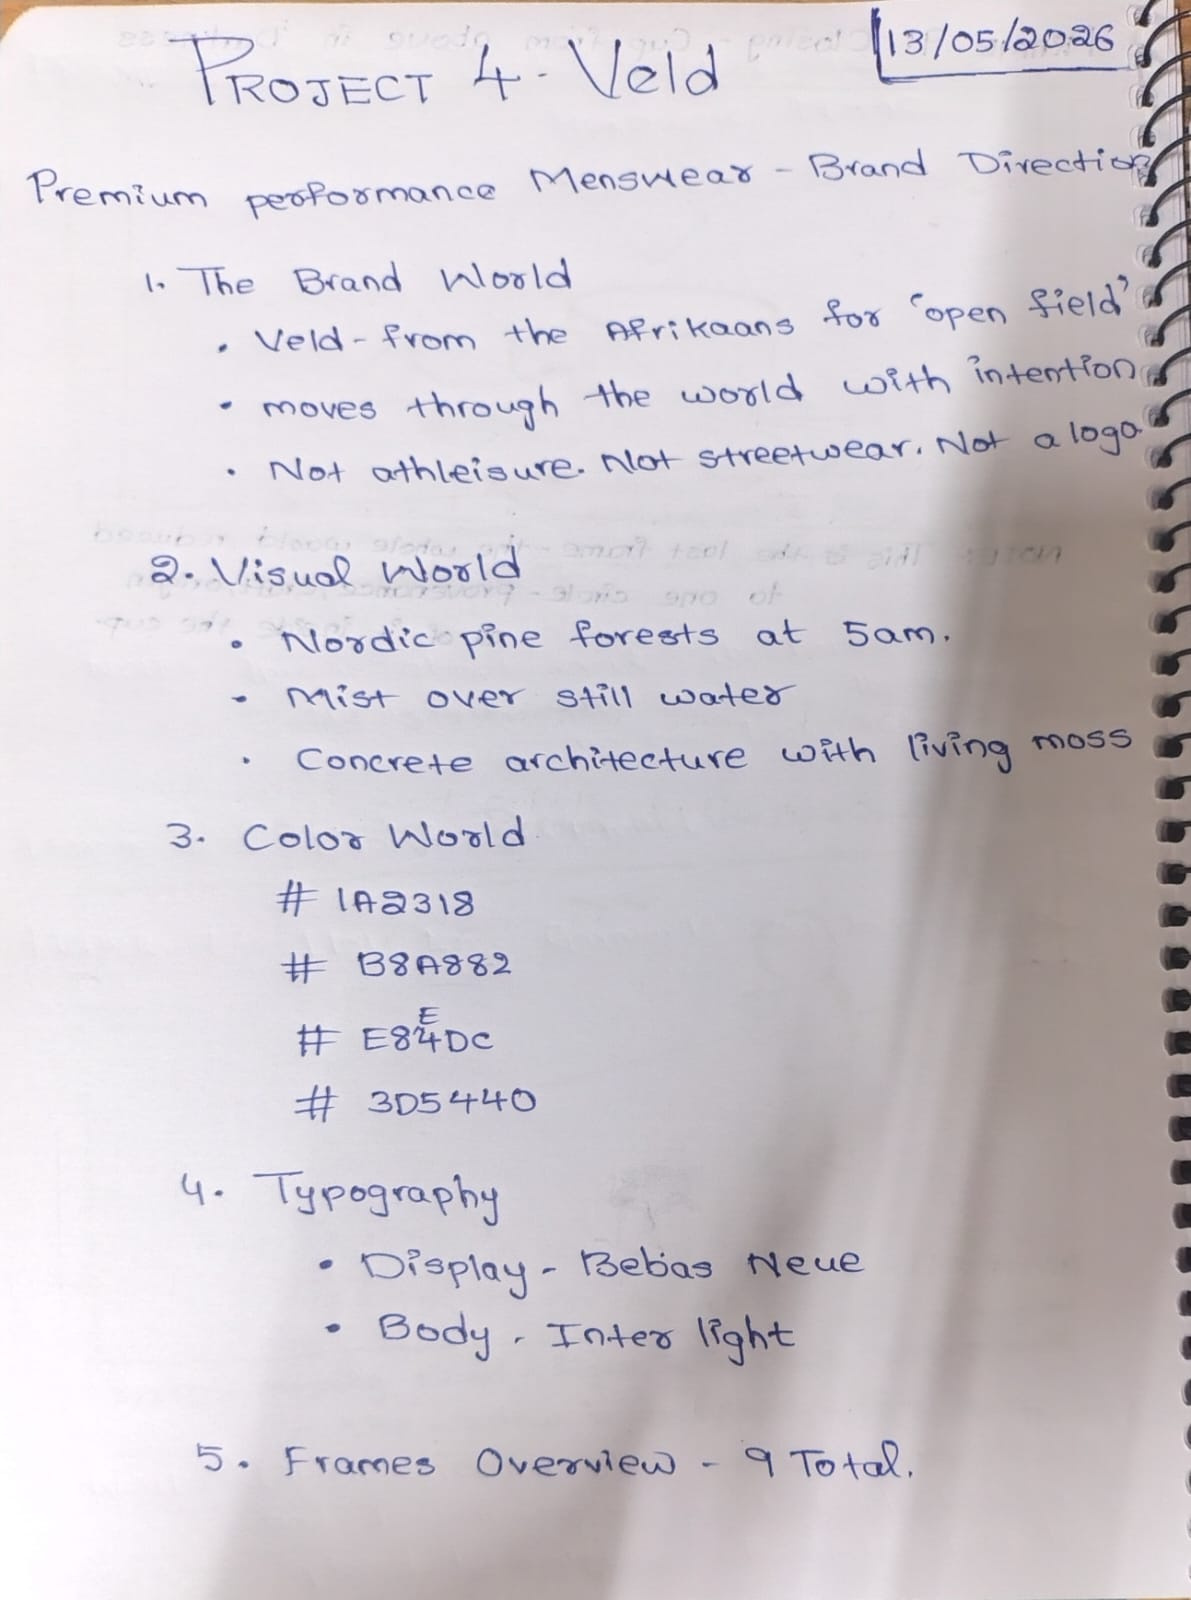 PROJECT 4 - Veld
13/05/2026
Premium performance Menswear - Brand Direction
1. The Brand World
• Veld - from the Afrikaans for "open field"
• moves through the world with intention
• Not athleisure. Not streetwear. Not a logo
2. Visual World
• Nordic pine forests at 5am.
• Mist over still water
• Concrete architecture with living moss
3. Color World
# 1A2318
# B8A882
# E8E4DC
# 3D5440
4. Typography
• Display - Bebas Neue
• Body - Inter light
5. Frames Overview - 9 Total.